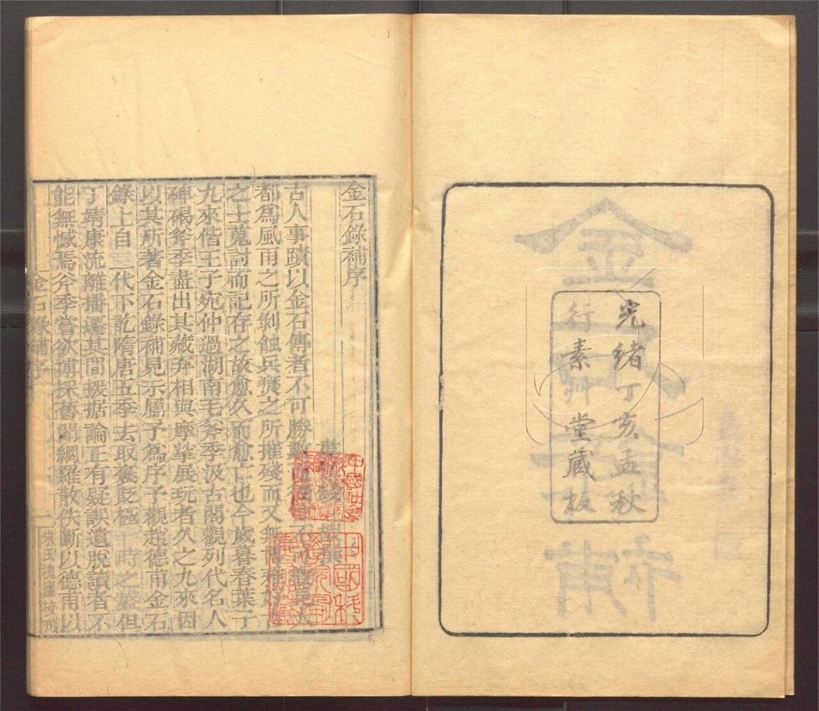 光緒丁亥孟秋
行素艸堂藏板
金石錄補序
古人事蹟以金石傳者不可勝數
都爲風雨之所剝蝕兵燹之所摧殘而又無博雅好古
之士蒐討而記存之故愈久而愈亡也今歲暮春葉子
九來偕王子宛仲過湖南毛斧季汲古閣觀列代名人
碑碣斧季盡出其藏弆相與摩挲展玩者久之九來因
以其所著金石錄補見示屬予爲序予觀趙德甫金石
錄上自三代下訖隋唐五季去取褒貶極一時之盛但
丁靖康流離播遷其間援据論正有疑誤遺脫讀者不
能無憾焉斧季嘗欲博採舊聞網羅散佚斷以德甫以
金石錄補序
一
朱氏槐廬校刊